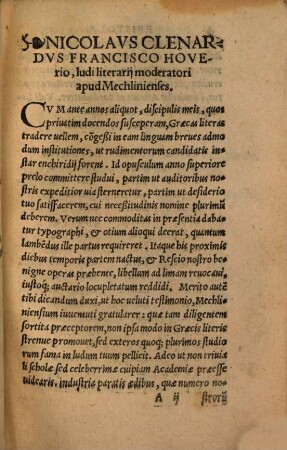 NICOLAVS CLENAR
DVS FRANCISCO HOVE
rio, ludi literarij moderatori
apud Mechlinienses.
CVM ante annos aliquot, discipulis meis, quos
priuatim docendos susceperam, Græcas literas
tradere uellem, cōgessi in eam linguam breues admo
dum institutiones, ut rudimentorum candidatis in-
star enchiridij forent. Id opusculum anno superiore
prelo committere studui, partim ut auditoribus no
stris expeditior uia sterneretur, partim ut desiderio
tuo satisfacerem, cui necessitudinis nomine plurimū
deberem. Verum nec commoditas in præsentia daba
tur typographi, & otium alioqui deerat, quantum
lambēdus ille partus requireret. Itaque his proximis
diebus temporis partem nactus, & Rescio nostro be
nigne operas præbente, libellum ad limam reuocaui,
iustoq; auctario locupletatum reddidi. Merito autē
tibi dicandum duxi, ut hoc ueluti testimonio, Mechli-
niensium iuuentuti gratularer: quæ tam diligentem
sortita præceptorem, non ipsa modo in Græcis literis
strenue promouet, sed exteros quoq; plurimos studio
rum fama in ludum tuum pellicit. Adeo ut non triuia
li scholæ sed celeberrimæ cuipiam Academiæ præesse
uidearis, industria paratis ædibus, quæ numero no-
A ij strorū